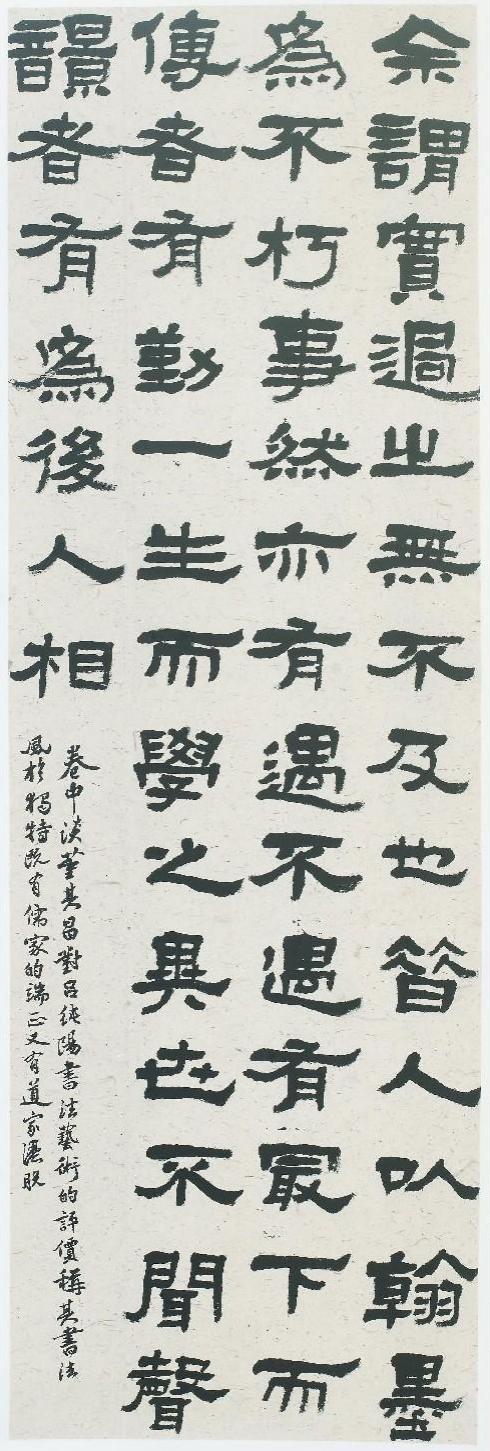 余謂實過之無不及也昔人以翰墨
為不朽事然亦有遇不遇有最下而
傳者有勤一生而學之異世不聞聲
韻者有為後人相
卷中談董其昌對呂純陽書法藝術的評價稱其書法
風格獨特既有儒家的端正又有道家灑脫